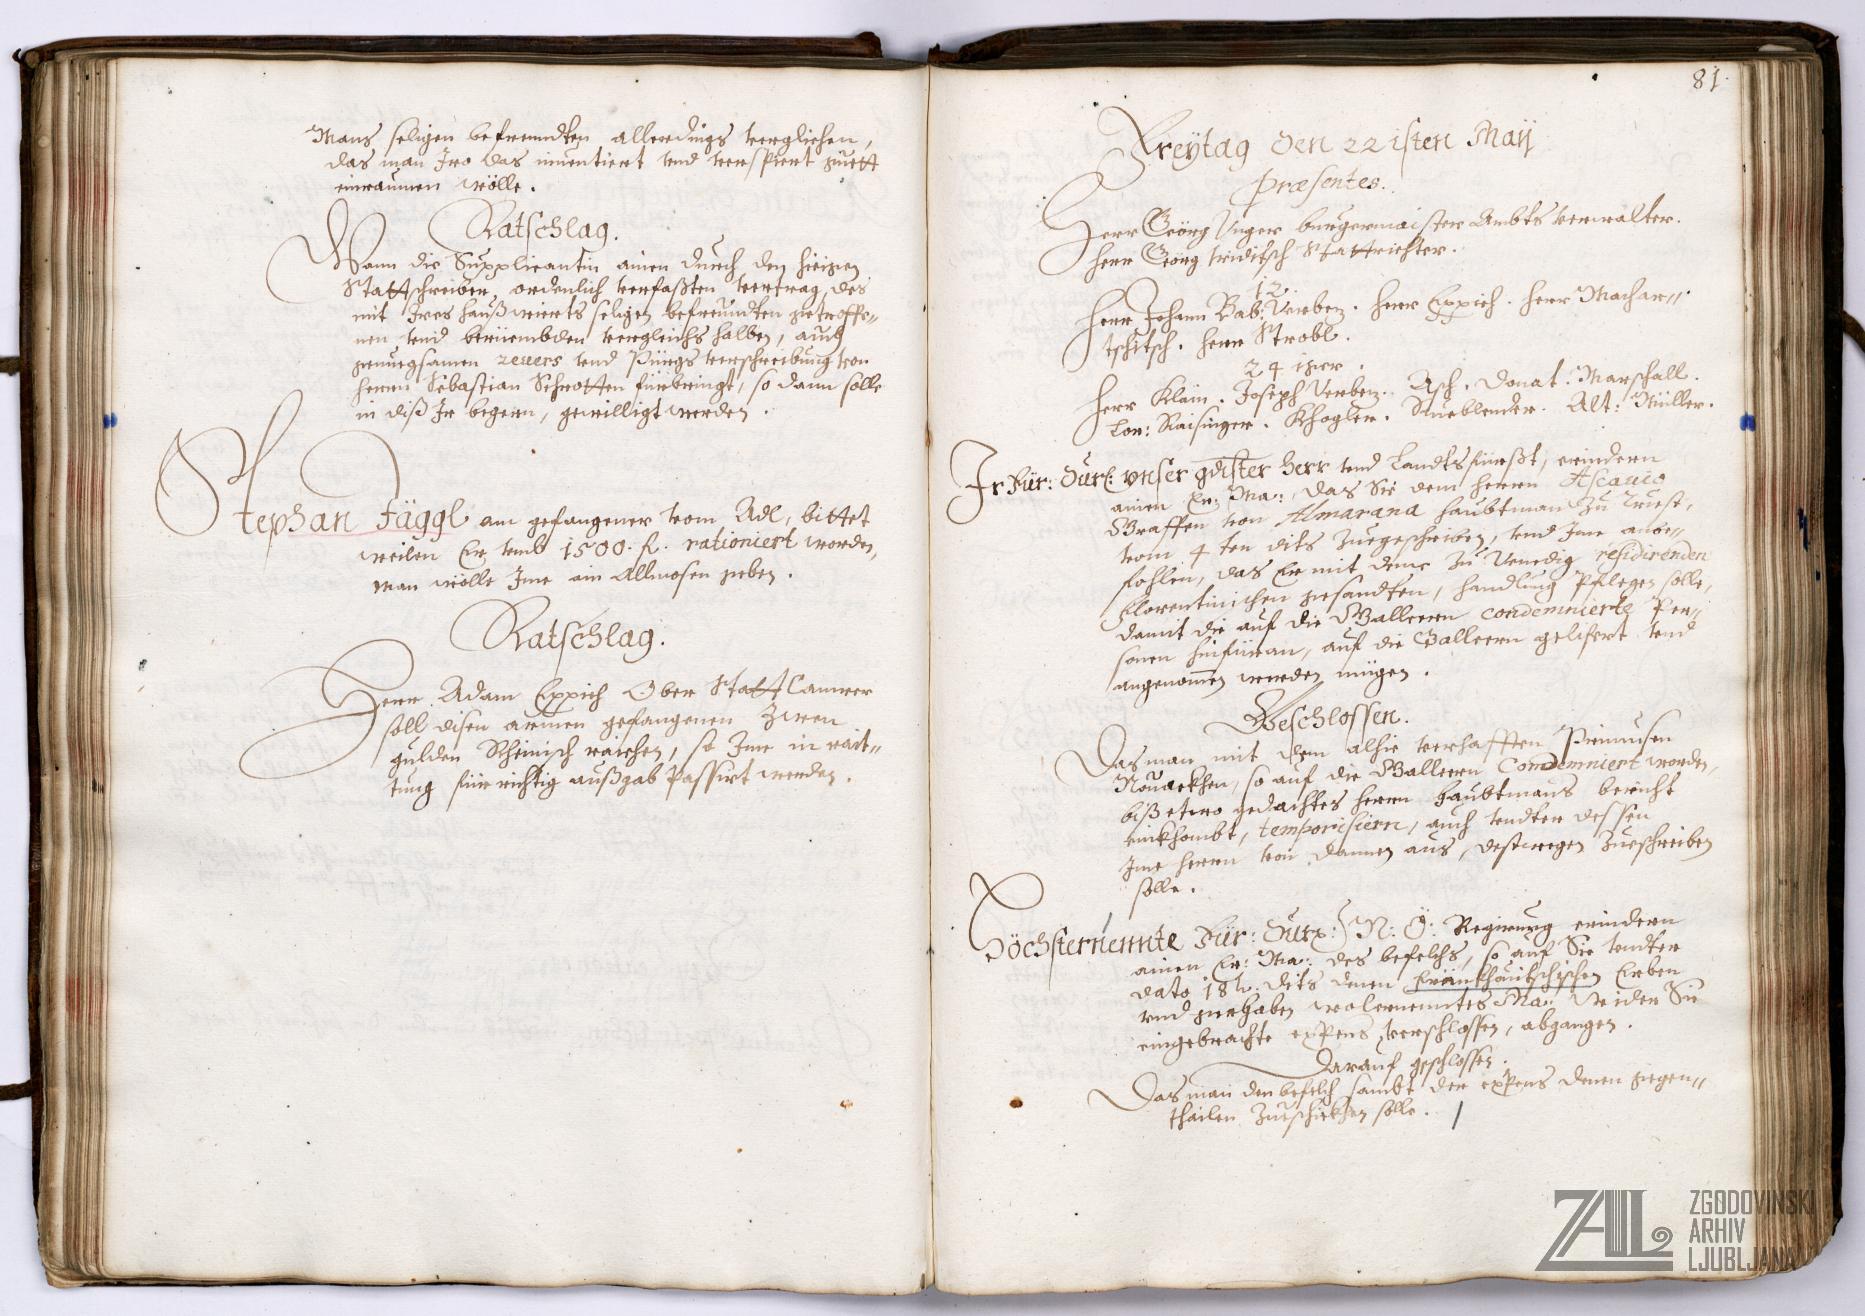 Mans seligen befreundten allerdings verglichen,
das man Iro das inventiert vnd verspiert guett
einraumen wölle.
Ratschlag.
Wann die Supplicantin ainen durch den hieigen
Stattschreiber ordenlich verfaßten vertrag, des
mit Ires haußwierts seligen befreundten getroffe-
nen vnd berüembden vergleichs halben, auch
genuegsamen revers vnd Püergs verschreibung von
herrn Sebastian Schrotten fürbringt, so dann solle
in diß Ir begern, gewilligt werden.
Stephan Jäggl am gefangener vom Adl, bittet
weilen Er vmb 1500. fl. rationiert worden,
man wölle Ime ain Allmosen geben.
Ratschlag.
Herr Adam Eppich Ober Statt Camrer
soll disen armen gefangenen Zwen
gulden Rheinisch raichen, so Ime in rait-
tung für richtig außgab Passirt werden.
81.
Freytag den 22isten Maij
Præsentes.
Herr Georg Vnger burgermaister Ambts verwalter.
Herr Georg Viditsch Stattrichter.
12.
Herr Johann Bab: Verben. herr Eppich. herr Machar-
tschitsch. herr Strobl.
24 iger.
Herr Klain. Joseph Verben. Asch. Donat. Marschall.
Lor: Raisinger. Khogler. Alt: Müller.
Ir Für: Durl: vnser gdister Herr vnd Landtsfürßt, erindern
ainen Er: Ma:, das Sie dem herrn Ascanio
Graffen von Almarana haubtman zu Triest,
vom 4 ten dits zuegeschriben, vnd Ime anbe-
fohlen, das Er mit deme zu Venedig residirenden
Florentinischen gesandten, handlung Pflegen solle,
damit die auf die Galleern condemnierte Per-
sonen hinfüran, auf die Galleern gelifert vnd
angenomen werden mügen.
Beschlossen.
Das man mit dem alhie verhafften
Nouackhen, so auf die Galleern Condemniert worden,
biß etwo gedachtes herrn haubtmans bericht
einkhombt, temporisiern, auch vndter dessen
Ime herrn von dannen aus, destwegen zueschreiben
solle.
Höchsternennte Für: Durl: N: Ö: Regierung erindern
ainen Er: Ma: des befelchs, so auf Sie vndter
dato 18 dits denen Frankhouitschischen Erben
vnd gerhaben wolernenntes Ma: wider Sie
eingebrachte expens verschlossen, abgangen.
Darauf geschlossen.
Das man den befelch sambt der expens denen gegen-
thailen zueschickhen solle.
ZAL
ZGODOVINSKI
ARHIV
LJUBLJANA